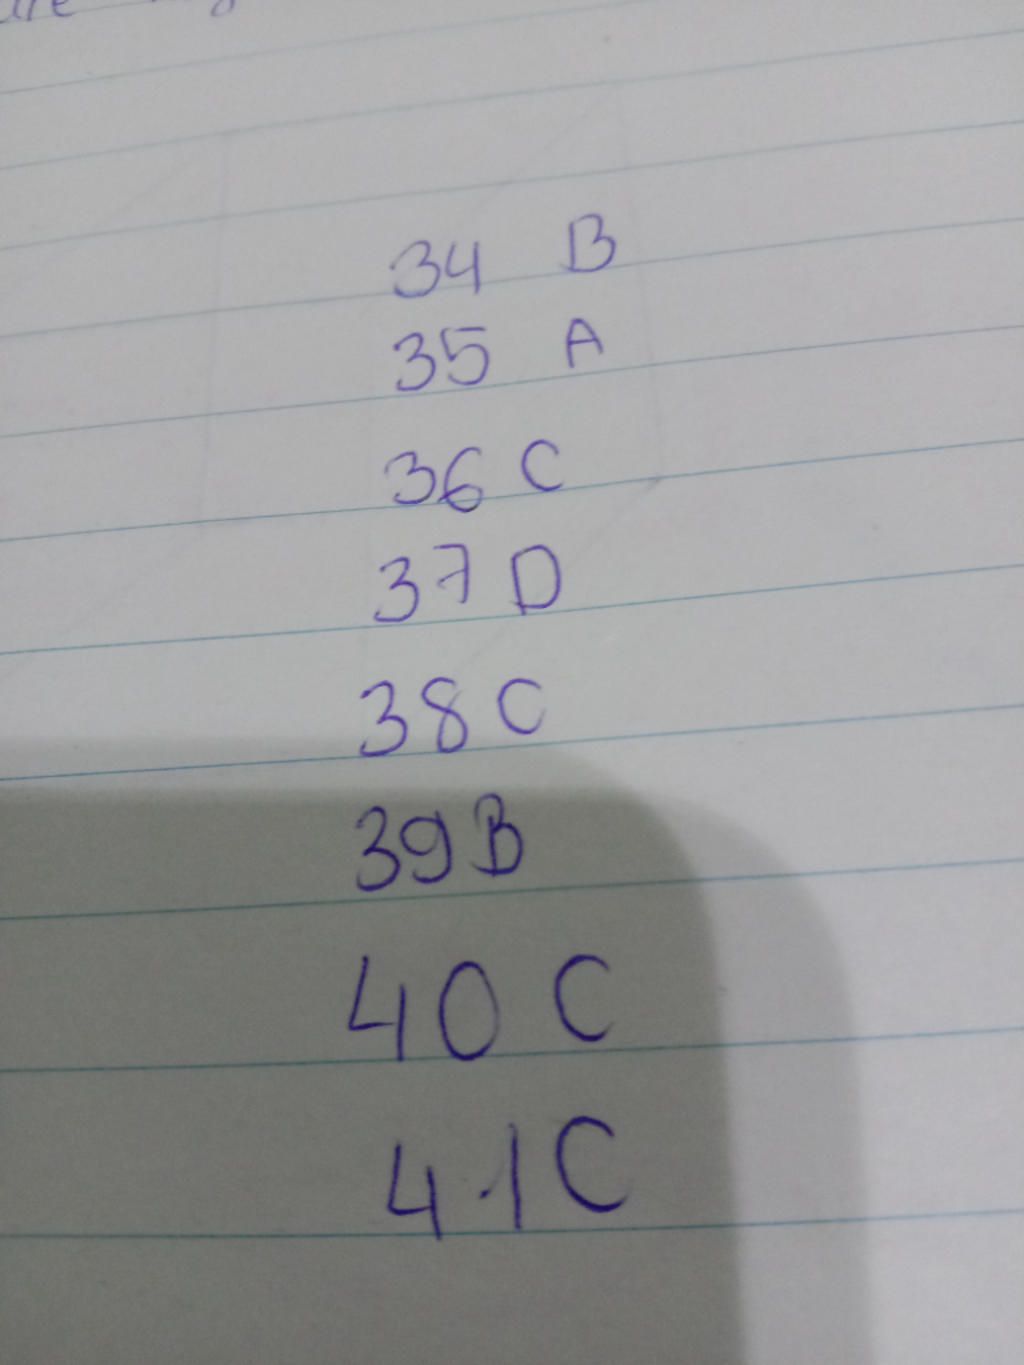 34 B
35 A
36 C
37 D
38 C
39 B
40 C
41 C